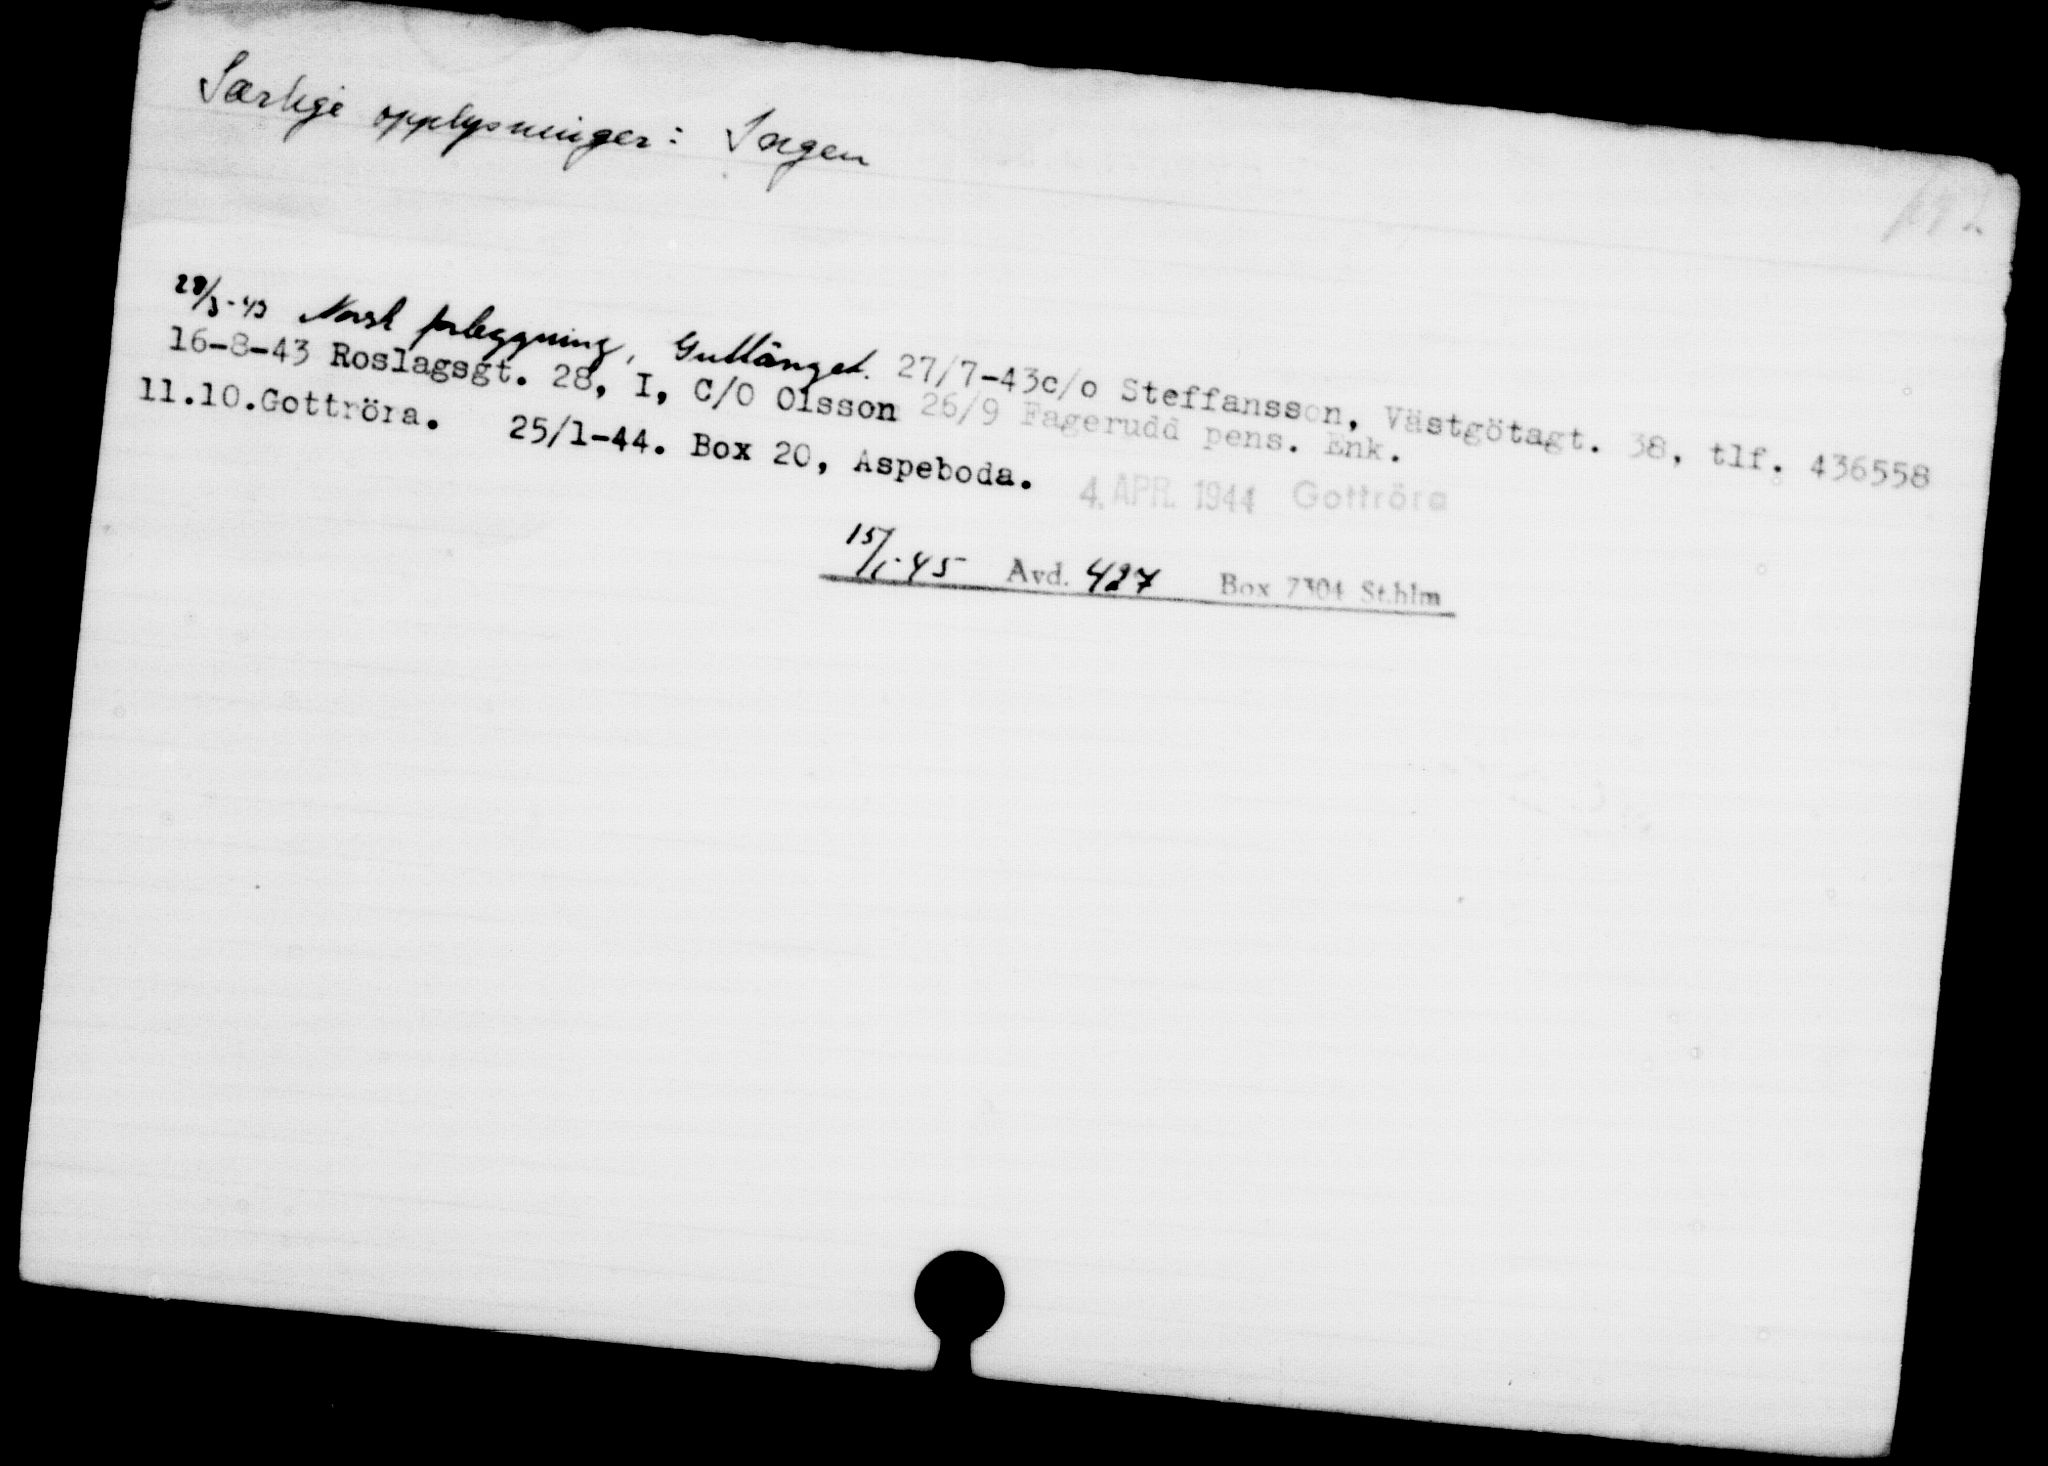 Særlige opplysninger: Ingen
28/3-43 Norsk forleggning, Gullänget. 27/7-43c/o Steffansson, Västgötagt. 38, tlf. 436558
16-8-43 Roslagsgt. 28, I, C/O Olsson 26/9 Fagerudd pens. Enk.
11.10.Gottröra. 25/1-44. Box 20, Aspeboda. 4. APR. 1944 Gottröra
15/1-45 Avd. 427 Box 7304 St.hlm